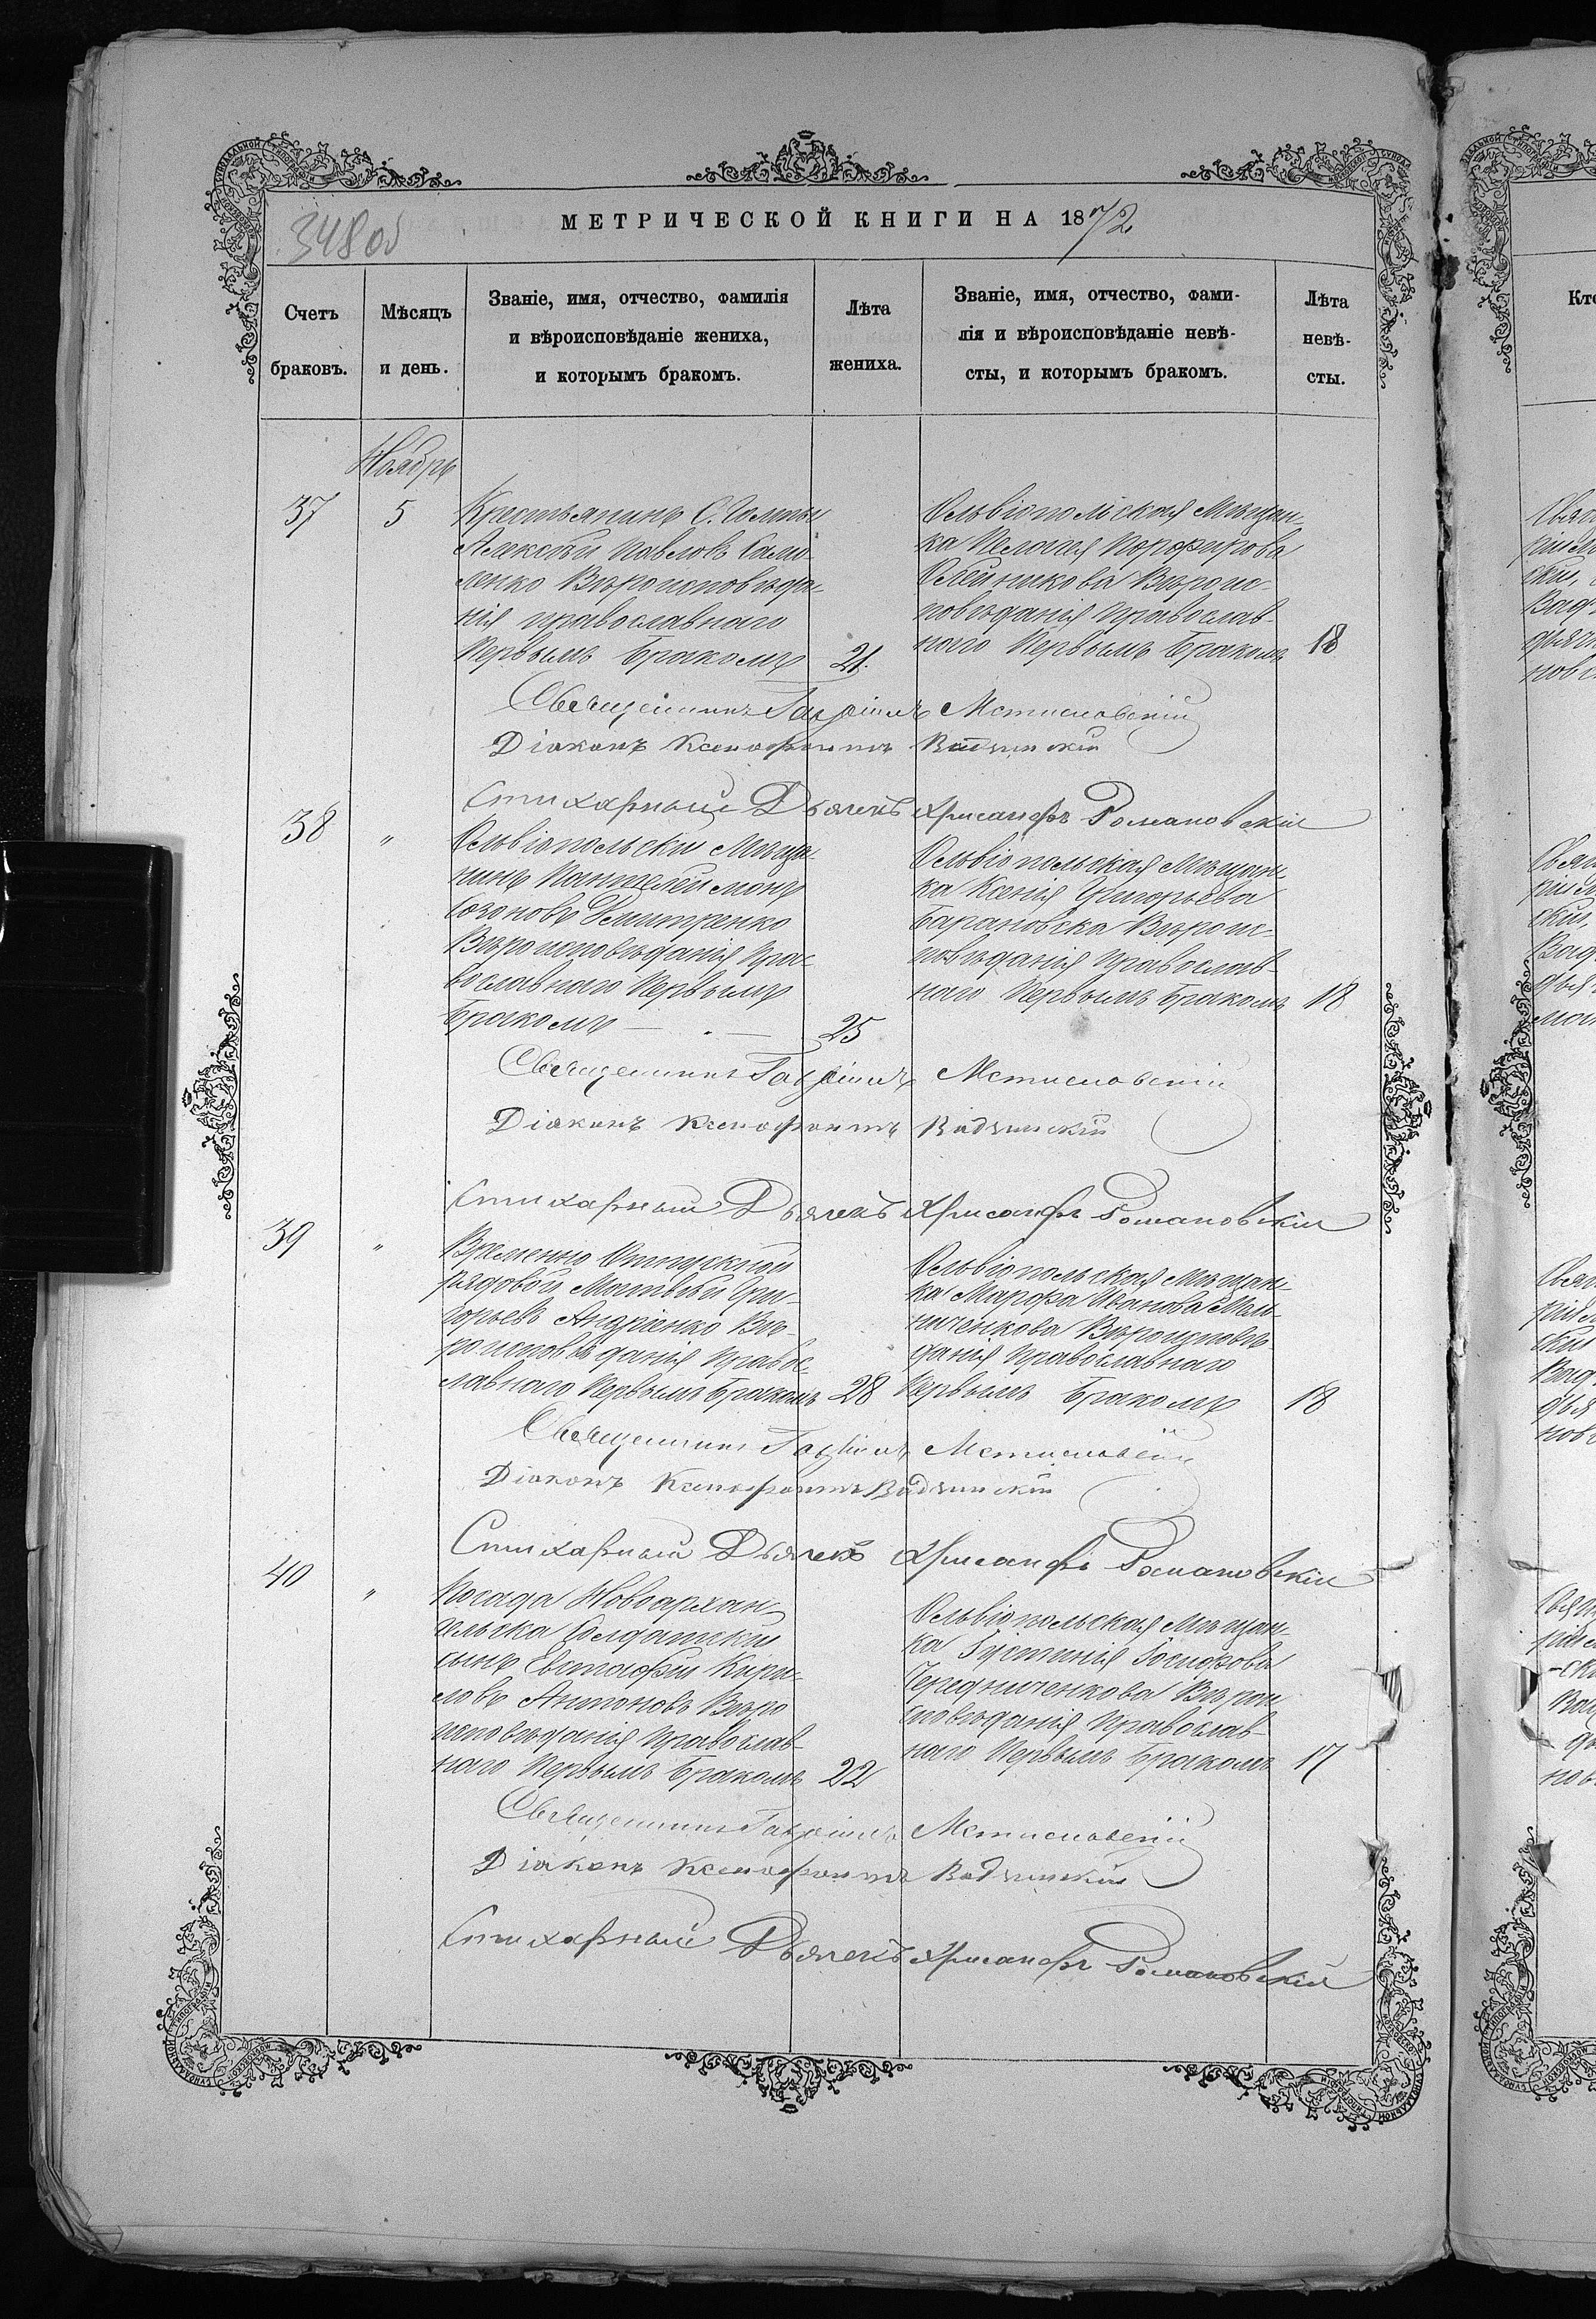 МЕТРИЧЕСКОЙ КНИГИ НА 1872
348 об
Счетъ браковъ.
Мѣсяцъ и день.
Званіе, имя, отчество, фамилія
и вѣроисповѣданіе жениха,
и которымъ бракомъ.
Лѣта
жениха.
Званіе, имя, отчество, фами-
лія и вѣроисповѣданіе невѣ-
сты, и которымъ бракомъ.
Лѣта
невѣ-
сты.
Ноябрь
37
5
Крестьянинъ С.
Алексѣй Павловъ
ленко Вѣроисповѣда-
нія православнаго
Первымъ Бракомъ 21.
Ольвіопольская Мѣщан-
ка Пелагея Порфирова
Олейникова Вѣроис-
повѣданія Православ-
наго Первымъ Бракомъ 18
Священникъ Гавріилъ Мстиславскій
Діаконъ Ксенофонтъ Вадзинскій
Стихарный Дьячекъ Хрисанфъ Романовскій
38
"
Ольвіопольскій Мѣща-
нинъ Пантелеймонъ
Созоновъ Дмитренко
Вѣроисповѣданія Пра-
вославнаго Первымъ
Бракомъ — . — 25
Ольвіопольская Мѣщан-
ка Ксенія Григорьева
Барановска Вѣроис-
повѣданія Православ-
наго Первымъ Бракомъ 18
Священникъ Гавріилъ Мстиславскій
Діаконъ Ксенофонтъ Вадзинскій
Стихарный Дьячекъ Хрисанфъ Романовскій
39
"
Временно Отпускной
рядовой Матвѣй Гри-
горьевъ Андріенко Вѣ-
роисповѣданія Правос-
лавнаго Первымъ Бракомъ 28
Ольвіопольская Мѣщан-
ка Марфа Иванова Мель-
ниченкова Вѣроисповѣ-
данія Православнаго
Первымъ Бракомъ 18
Священникъ Гавріилъ Мстиславскій
Діаконъ Ксенофонтъ Вадзинскій
Стихарный Дьячекъ Хрисанфъ Романовскій
40
"
Посада Новоархан-
гельска Солдатскій
сынъ Евстафій Кири-
ловъ Антоновъ Вѣро
исповѣданія Православ-
наго Первымъ Бракомъ 22
Ольвіопольская Мѣщан-
ка Густинія Іосифова
Чередниченкова Вѣрои
сповѣданія Православ-
наго Первымъ Бракомъ 17
Священникъ Гавріилъ Мстиславскій
Діаконъ Ксенофонтъ Вадзинскій
Стихарный Дьячекъ Хрисанфъ Романовскій